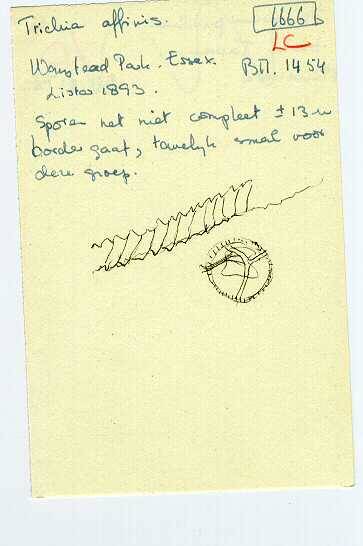 Trichia affinis.
1666
LC
Wanstead Park. Essex.
BM. 1454
Lister 1893.
Sporen net niet compleet ± 13 u
border gaaf, tamelijk smal voor
deze groep.